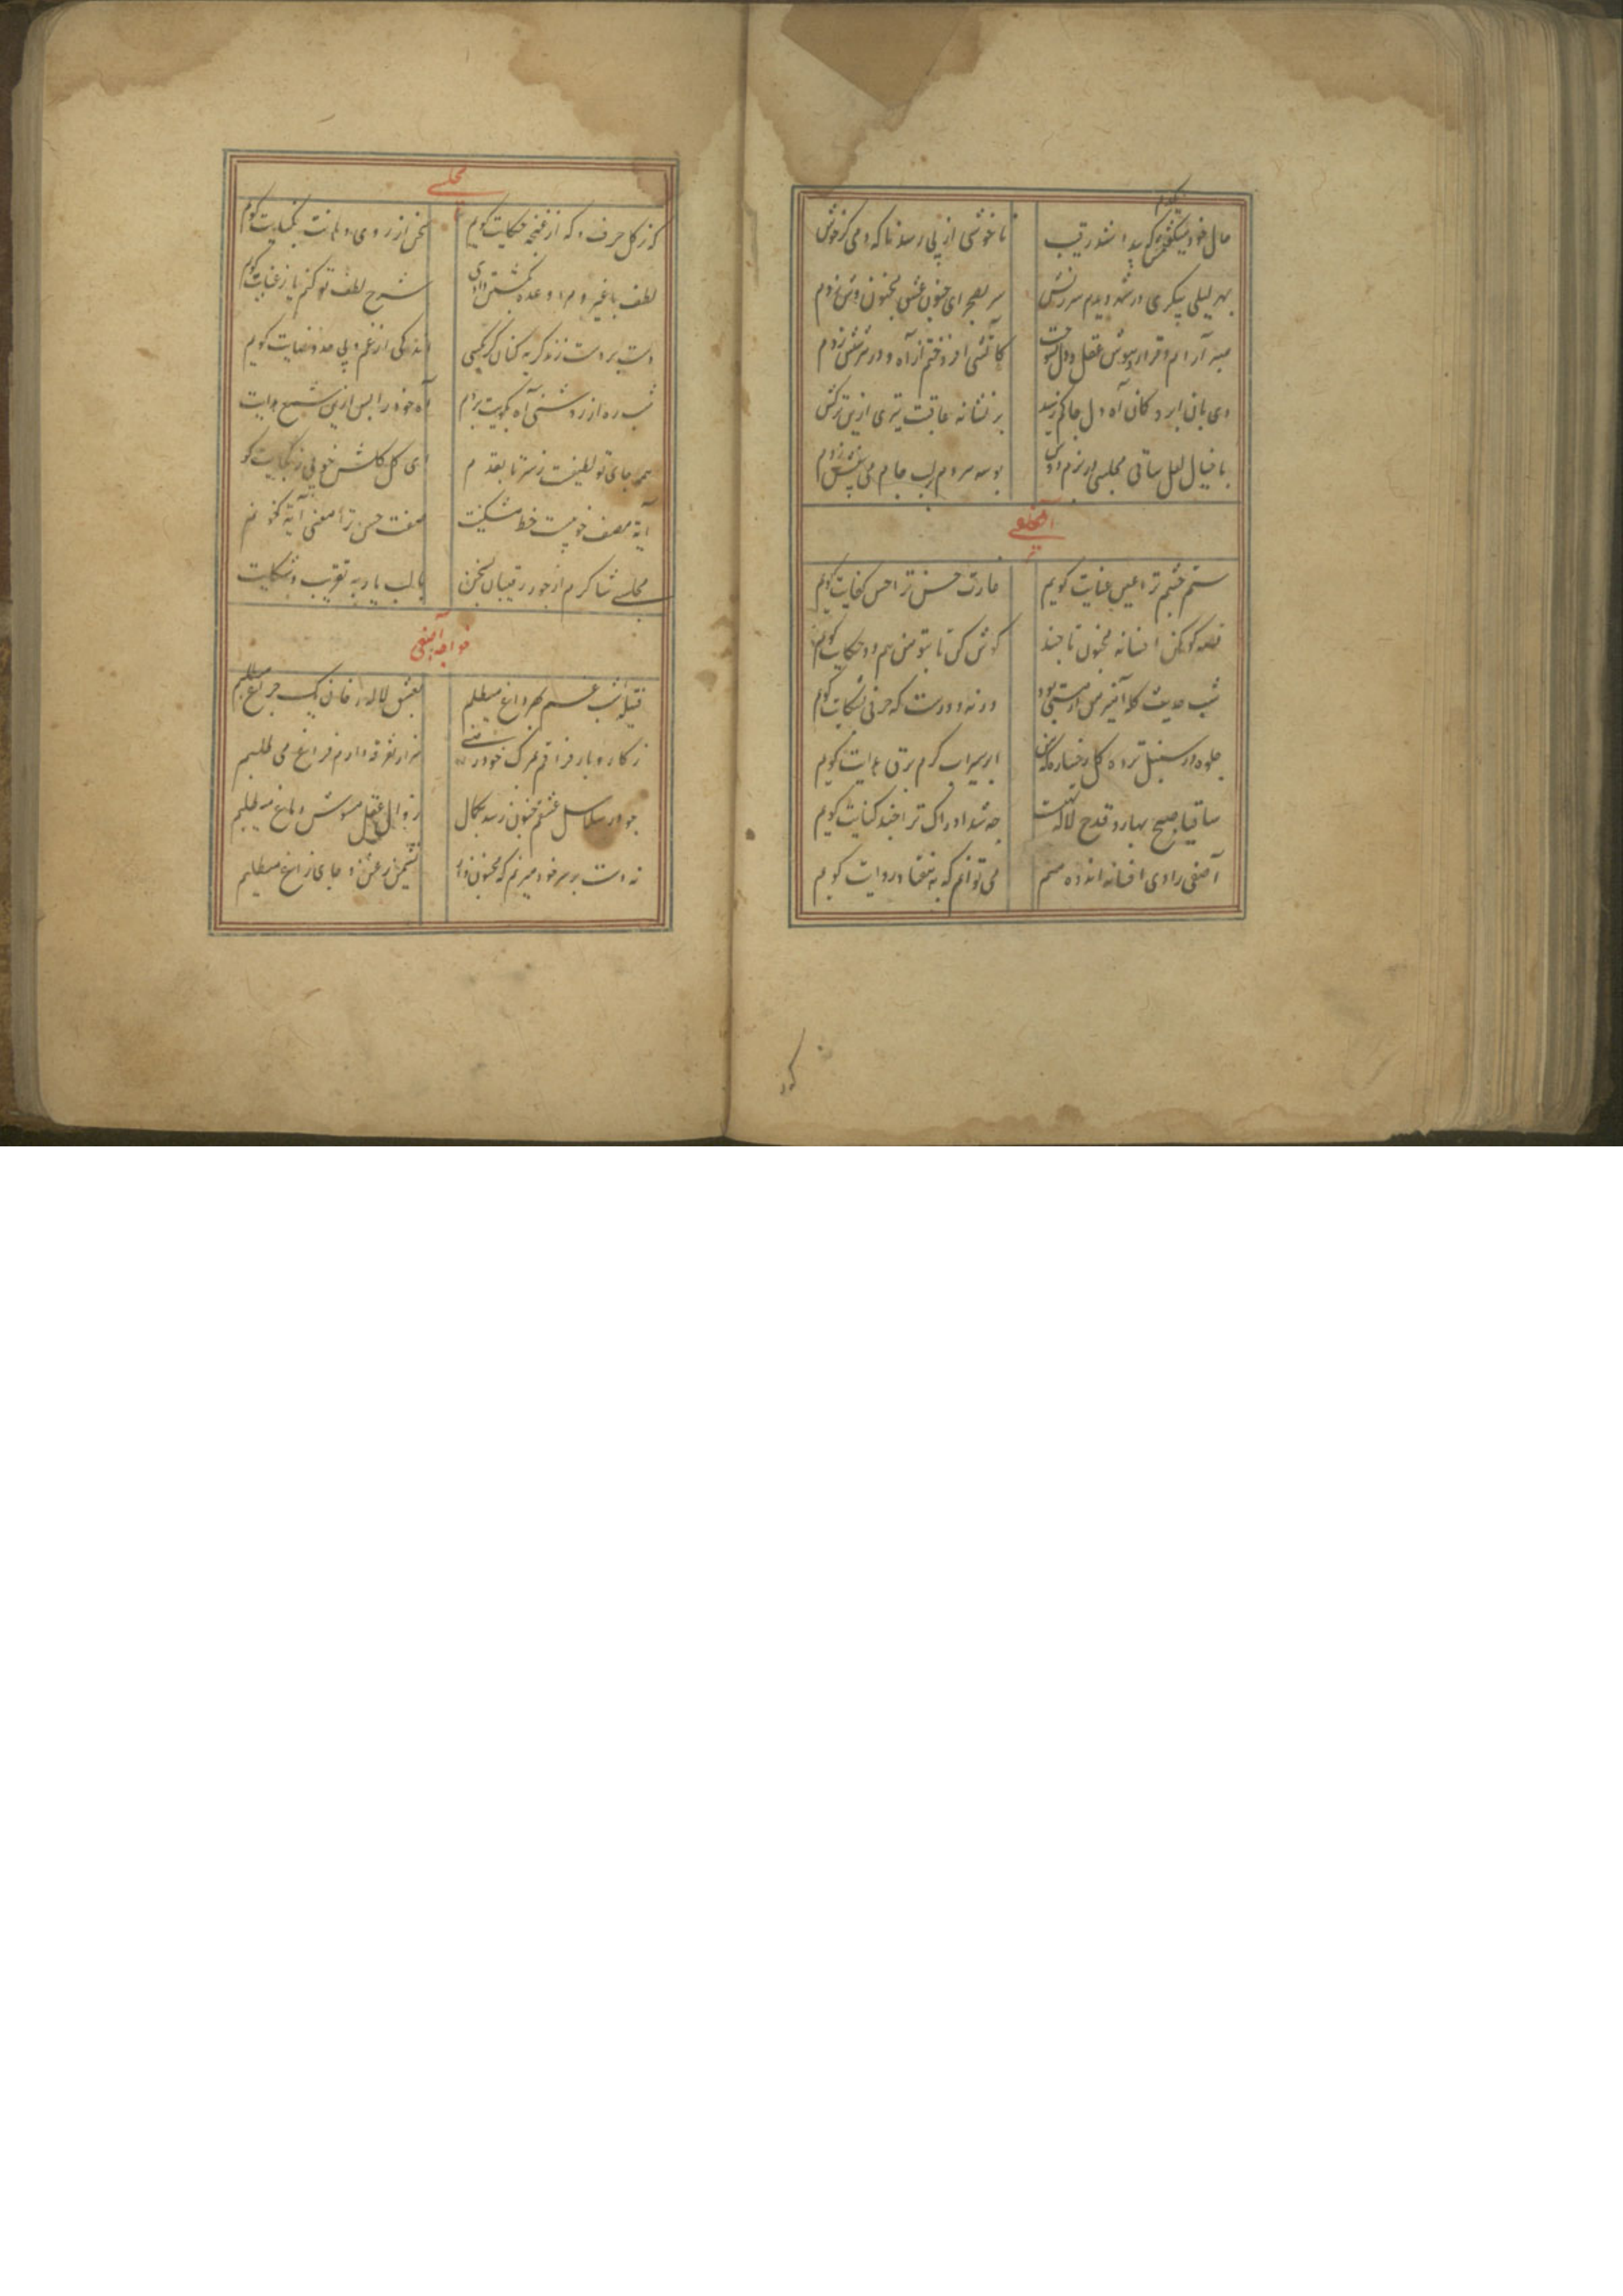 حال خود میگفتمش که پیدا شد رقیب
ناخوشی از پی رسد ناکه دمی کر خوش زدم
بهر لیلی پیکری در شهر دیدم سرزنش
سر بصحرای جنون عشق مجنون وش زدم
صبر آرام و قرار و هوش عقل و دل بسوخت
کآتشی افروختم از آه و در هر شش زدم
بر نشانه عاقبت تیری ازین ترکش زدم
با خیال لعل ساقی مجلسی در بزم دوش
بوسه مردم بر لب جام می بیغش زدم
آصفی
ستم چشم ترا عین عنایت کویم
غارت حسن ترا حسن کفایت کویم
قصه کوهکن افسانه مجنون تا چند
کوش کن تا بتو من هم دو حکایت کویم
شب حدیث کله آمیز من از مستی بود
ورنه دورست که حرفی بشکایت کویم
ابر سیراب کرم برق هدایت کویم
ساقیا صبح بهار و قدح لاله کفست
چه شد ادراک ترا چند کنایت کویم
آصفی راوی افسانه اندوه منم
می توانم که به هفتاد روایت کویم
مجلسی
که ز کل حرف و که از غنچه حکایت کویم
سخن از روی و دهانت بکنایت کویم
لطف با غیر و مرا وعده کشتن دادی
شرح لطف تو کنم یا ز عنایت کویم
دست بر دست زند کریه کنان هر که کسی
اندکی از غم بی حد و نهایت کویم
شب ره از روشنی آه بکویت بردم
آه خود را پس ازین شمع هدایت
همه جای تو لطیفست ز سر تا بقدم
ای کل کلشن خوبی ز کجایت کو
آیه مصحف خوبیست خط مشکینت
صفت حسن ترا معنی آیه کویم
مجلسی شاکرم از جور رقیبان لیکن
با لب یار به تقریب شکایت
خواجه آصفی
فتیله شب غم بهر داغ میطلبم
بعشق لاله رخان یک چراغ میطلبم
ز کار و بار فراقم بمرک خود راضی
هزار تفرقه دارم فراغ می طلبم
چو در سلاسل عشقم جنون رسد بکمال
زوال عقل مشوش دماغ میطلبم
نه دست بر سر خود میزنم که مجنون وار
نشیمن زغن و جای زاغ میطلبم